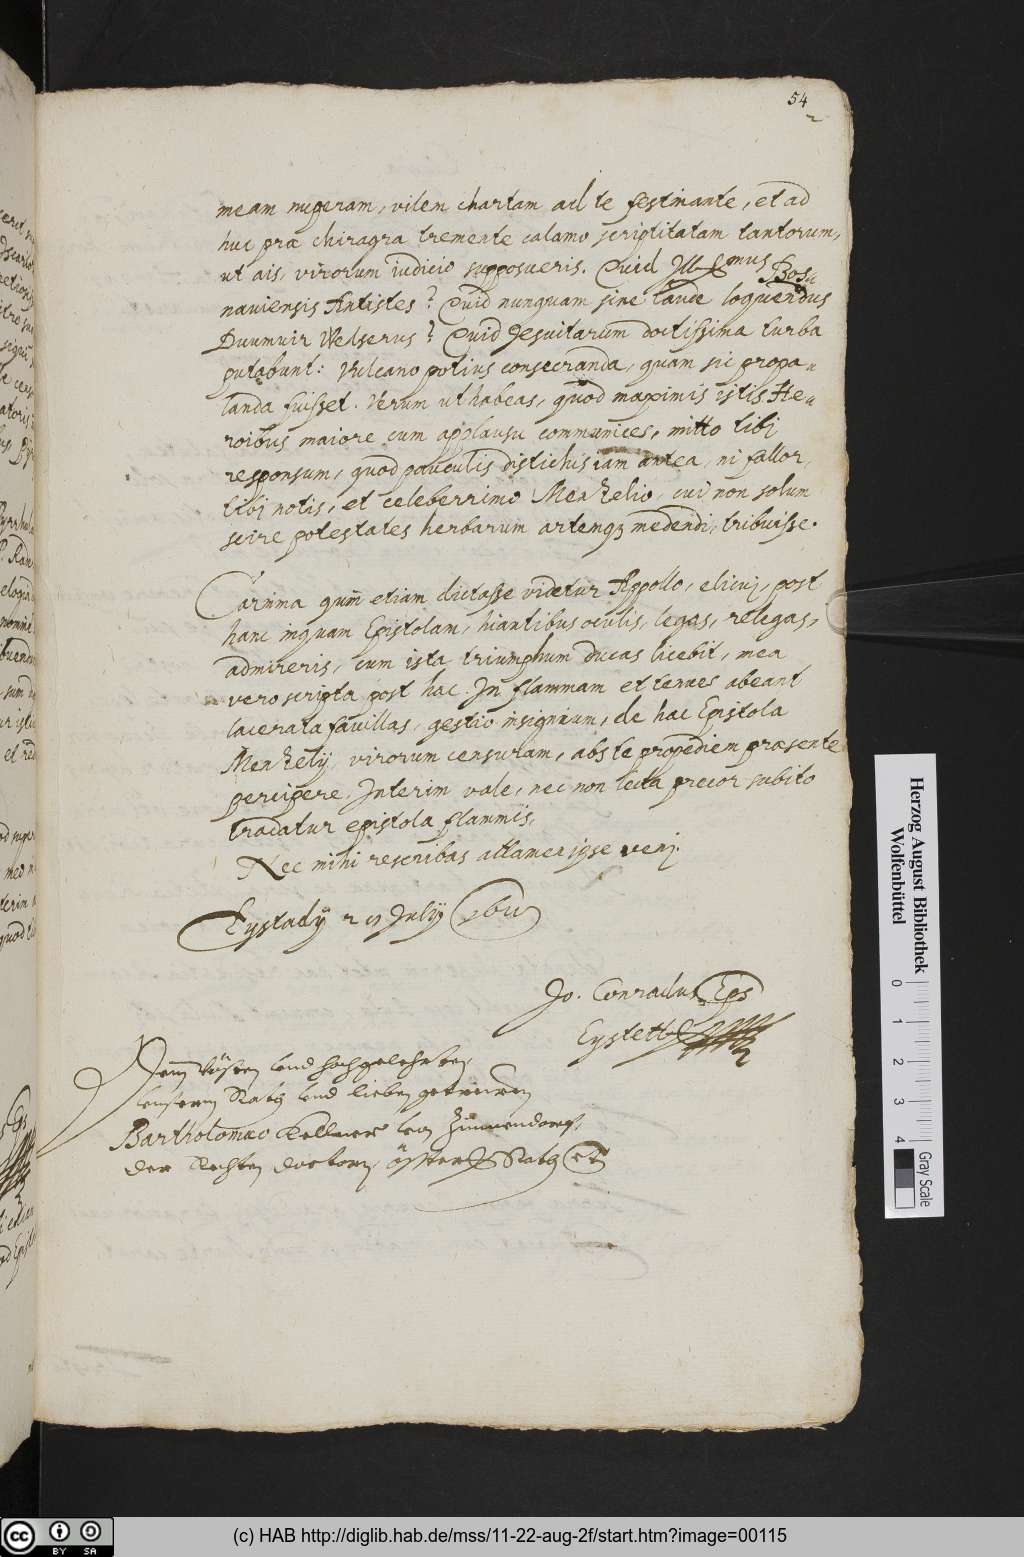 54
meam nuperam, vilem chartam ad te festinante, et ad
huc præ chiragra tremente calamo scriptitatam tantorum,
ut ais, virorum iudicio supposueris. Quid Ill mus Bos
naviensis Antistes? Quid nunquam sine laude loquendus
Duumvir Welserus? Quid Jesuitarum doctissima turba
putabunt: Vulcano potius consecranda, quam sic propa„
landa fuisset. Verum ut habeas, quod maximis istis He„
roibus maiore cum applausu communices, mitto tibj
responsum, quod pauculis distichis iam antea, ni fallor,
tibj notis, et celeberrimo Menzelio, cui non solum
scire potestates herbarum artemqz medendi, tribuisse.
Carmina quin etiam dictasse videtur Appollo, elicuj, post
hanc inquam Epistolam, hiantibus oculis, legas, relegas,
admireris, cum ista triumphum ducas licebit, mea
vero scripta post hac. In flammam et tenues abeant
lacerata favillas, gestio insignium, de hac Epistola
Menzelij, virorum censuram, abs te propediem præsente
percipere. Interim vale, nec non lecta precor subito
tradatur epistola flammis,
Nec mihi rescribas attamen ipse venj.
Eystadij 2 Julij
Jo. Conradus Eps
Eystett
Dem vösten vnd hochgelehrten,
vnserm Rath vnd lieben getrewen
Bartholomæo Kellner von Zinnendorf,
der Rechten doctorn, össterr Rath et
Herzog August Bibliothek
Wolfenbüttel
0 1 2 3 4
Gray Scale
cc BY SA
(c) HAB http://diglib.hab.de/mss/11-22-aug-2f/start.htm?image=00115